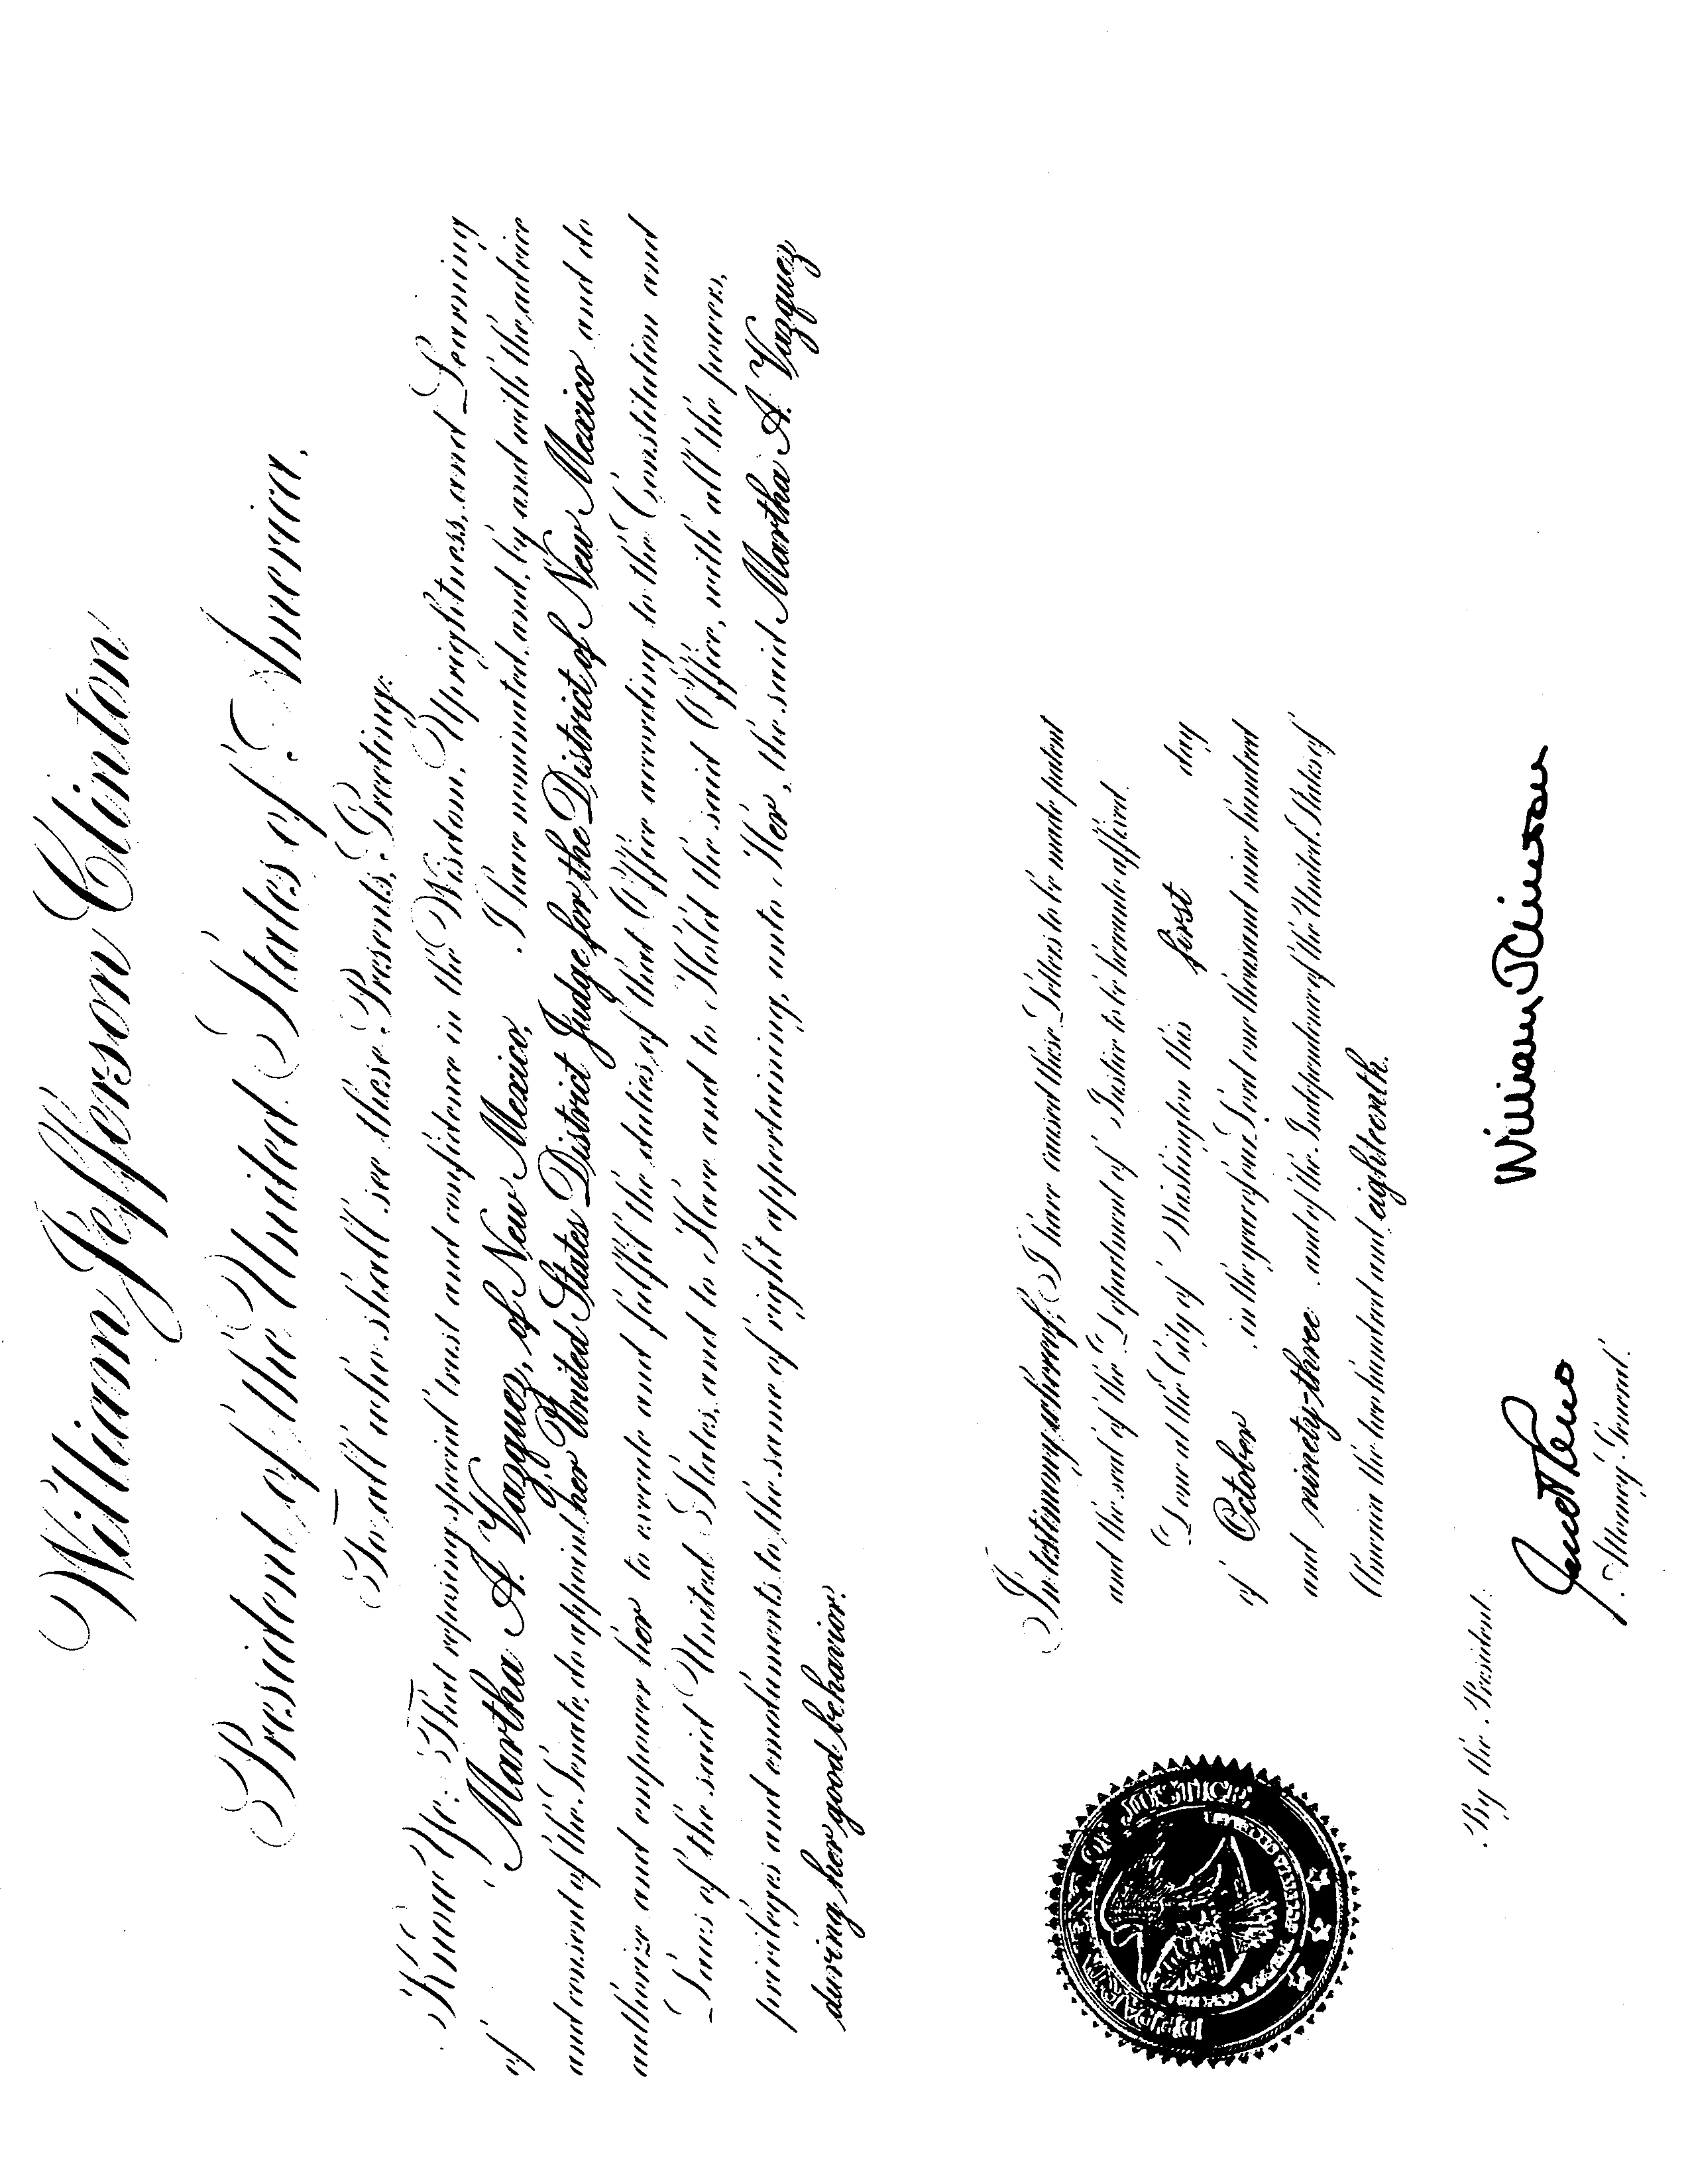 William Jefferson Clinton
President of the United States of America,
To all who shall see these Presents, Greeting:
Know Ye: That reposing special trust and confidence in the Wisdom, Uprightness, and Learning
of Martha A. Vazquez, of New Mexico, I have nominated, and, by and with the advice
and consent of the Senate, do appoint her United States District Judge for the District of New Mexico and do
authorize and empower her to execute and fulfil the duties of that Office according to the Constitution and
Laws of the said United States, and to Have and to Hold the said Office, with all the powers,
privileges and emoluments to the same of right appertaining, unto Her, the said Martha A. Vazquez
during her good behavior.
In testimony whereof, I have caused these Letters to be made patent
and the seal of the Department of Justice to be hereunto affixed.
Done at the City of Washington this first day
of October in the year of our Lord one thousand nine hundred
and ninety-three and of the Independence of the United States of
America the two hundred and eighteenth.
DEPARTMENT OF JUSTICE
William J Clinton
By the President:
Janet Reno
Attorney General.